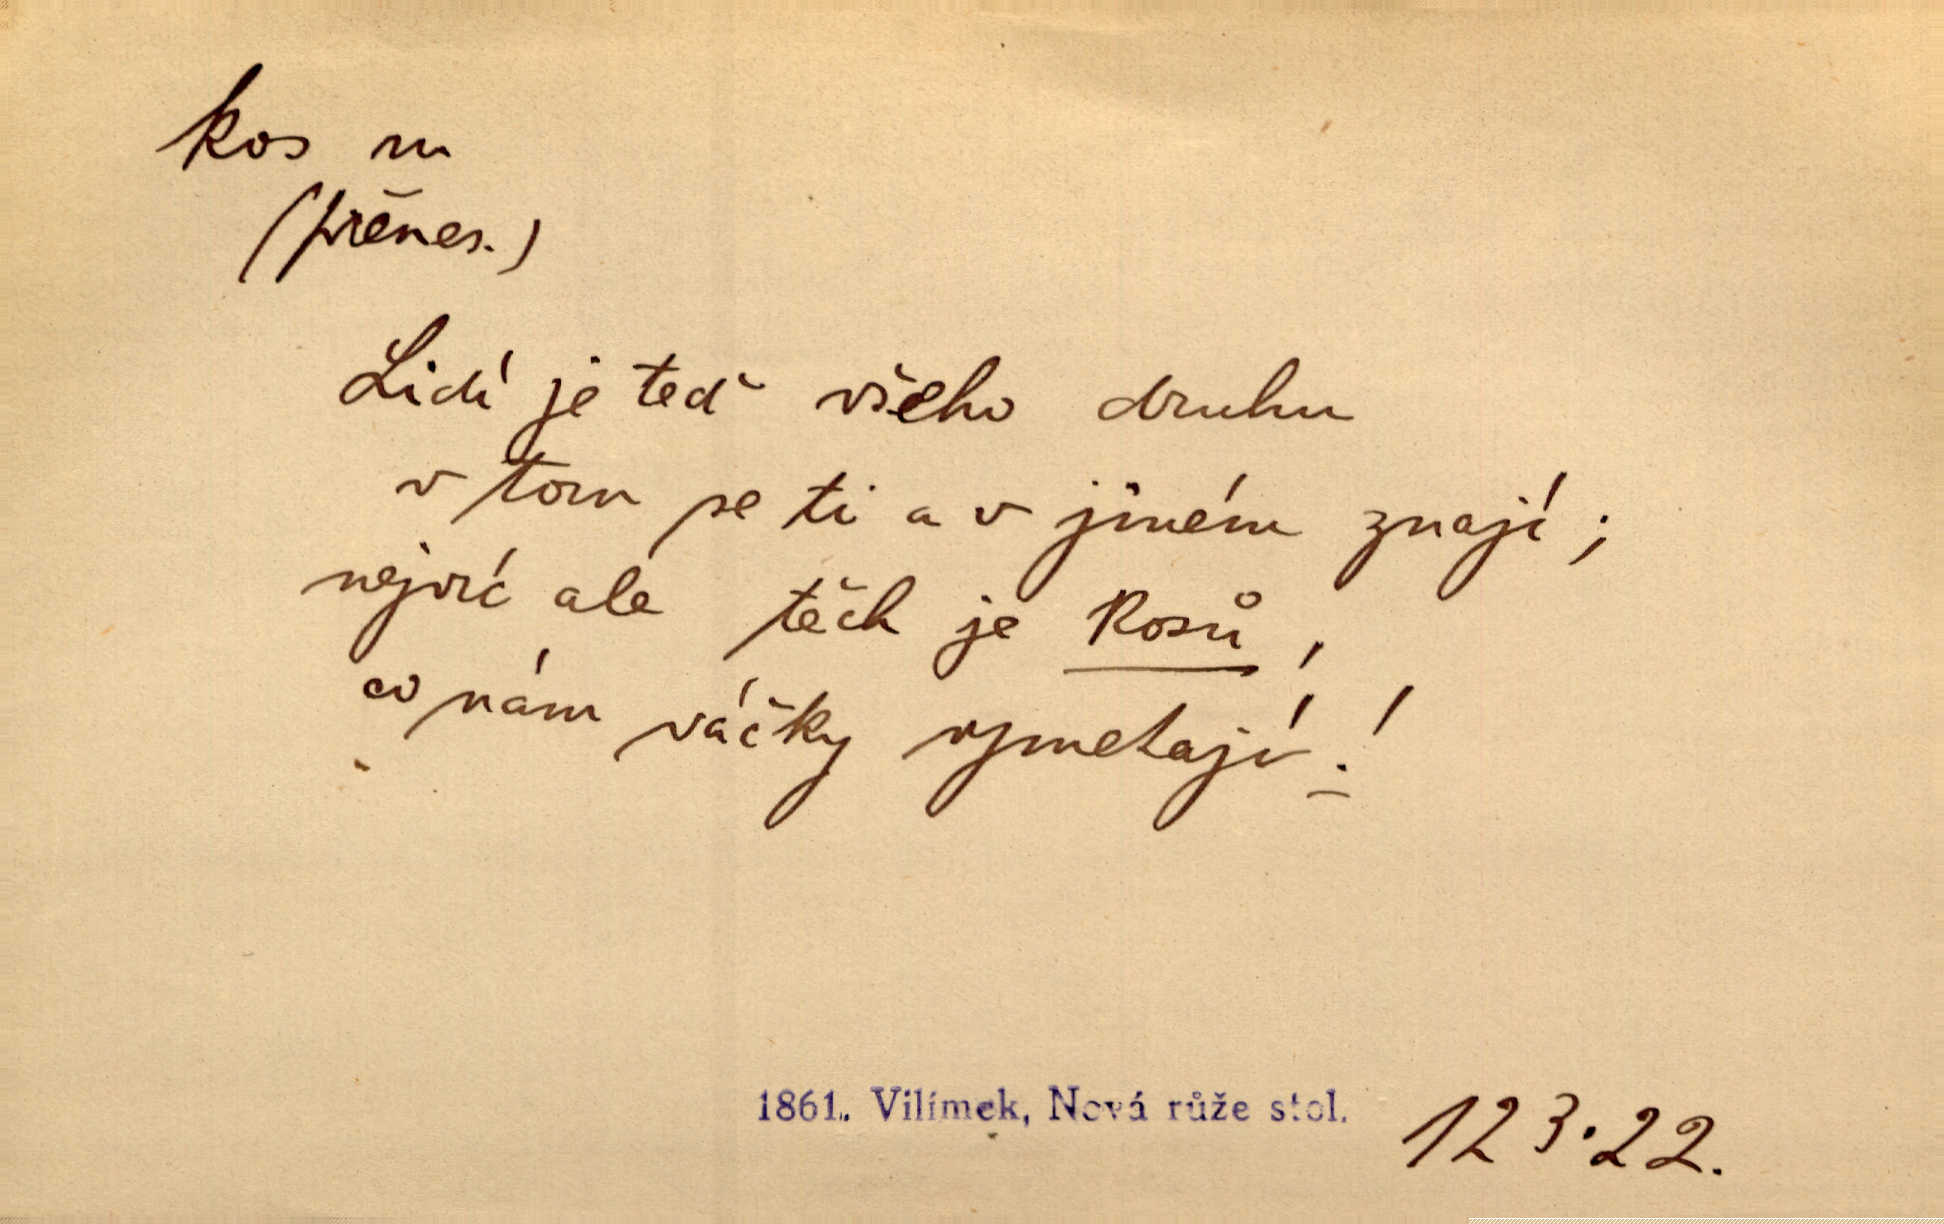 kos m
(přenes.)
Lidí je teď všeho druhu
v tom se ti a v jiném znají;
nejvíc ale těch je Kosů,
co nám váčky vymetají!
1861. Vilímek, Nová růže stol.
123.22.